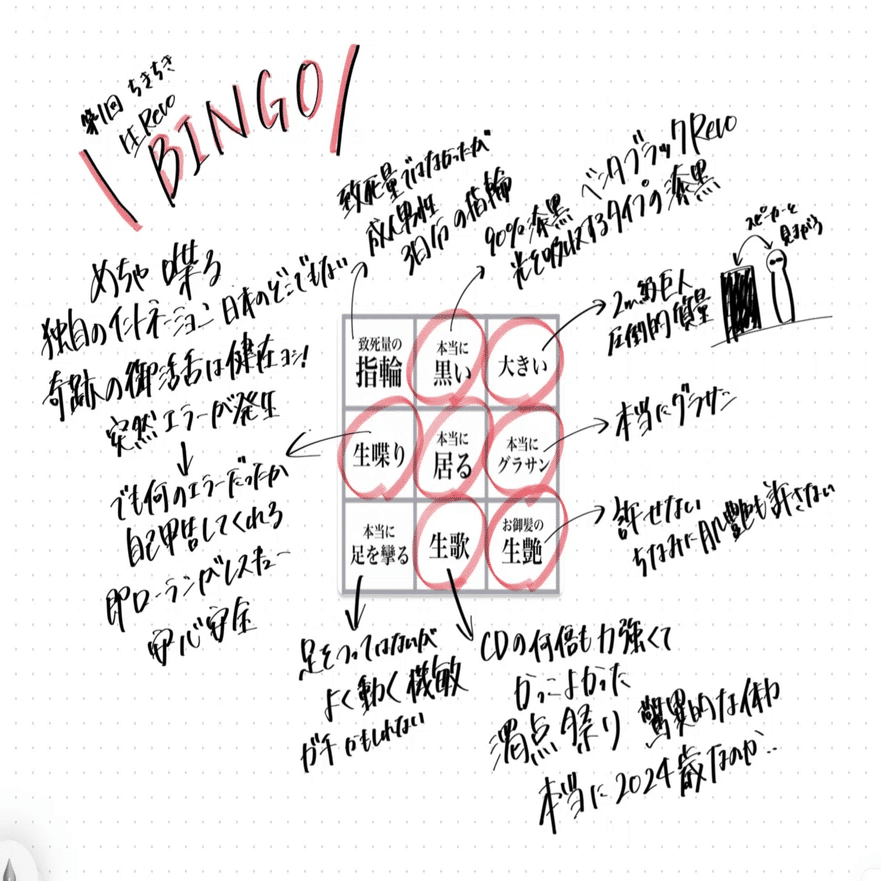 第1回 ちきちき
生Revo
\BINGO/
致死量ではなかったが
成人男性
3日分の指輪
90%漆黒 ベンタブラックRevo
光を吸収するタイプの漆黒
スピーカーと
見まがう
2m級巨人
圧倒的質量
めちゃ喋る
独自のイントネーション 日本のどこでもない
奇跡の御活舌は健在ヨシ!
突然エラーが発生
↓
でも何のエラーだったか
自己申告してくれる
即ローランがレスキュー
安心安全
致死量の
指輪
本当に
黒い
大きい
生喋り
本当に
居る
本当に
グラサン
本当に
足を攣る
生歌
お御髪の
生艶
本当にグラサン
許せない
ちなみに肌艶も許さない
足をつってはないが
よく動く 機敏
ガチかもしれない
CDの何倍も力強くて
かっこよかった
濁点祭り 驚異的な体力
本当に2024歳なのか..